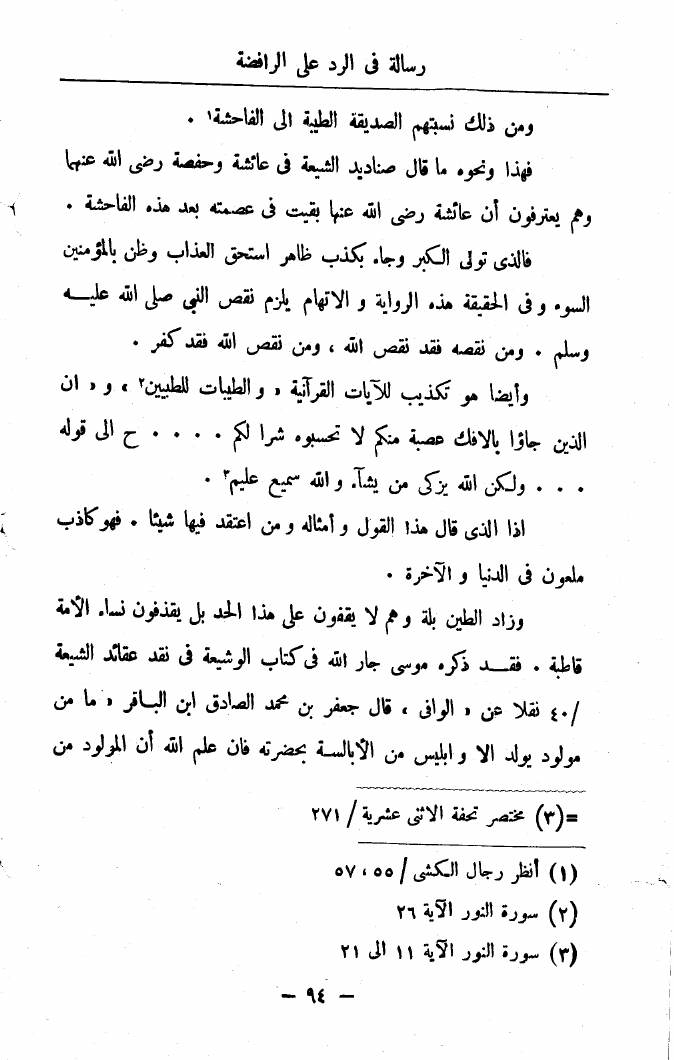 رسالة فى الرد على الرافضة
ومن ذلك نسبتهم الصديقة الطيبة الى الفاحشة١ .
فهذا ونحوه ما قال صناديد الشيعة فى عائشة وحفصة رضى الله عنهما
وهم يعترفون أن عائشة رضى الله عنها بقيت فى عصمته بعد هذه الفاحشة .
فالذى تولى الكبر وجاء بكذب ظاهر استحق العذاب وظن بالمؤمنين
السوء وفى الحقيقة هذه الرواية و الاتهام يلزم نقص النبى صلى الله عليـــه
وسلم . ومن نقصه فقد نقص الله ، ومن نقص الله فقد كفر .
وأيضا هو تكذيب للآيات القرآنية « و الطيبات للطيبين٢ » و « ان
الذين جاؤا بالافك عصبة منكم لا تحسبوه شرا لكم . . . . ح الى قوله
. . . ولكن الله يزكى من يشآء و الله سميع عليم٣ .
اذا الذى قال هذا القول و أمثاله و من اعتقد فيها شيئا . فهو كاذب
ملعون فى الدنيا و الآخرة .
وزاد الطين بلة وهم لا يقفون على هذا الحد بل يقذفون نساء الأمة
قاطبة . فقـــد ذكره موسى جار الله فى كتاب الوشيعة فى نقد عقائد الشيعة
/٤٠ نقلا عن « الوافى ، قال جعفر بن محمد الصادق ابن الباقر « ما من
مولود يولد الا و ابليس من الأبالسة بحضرته فان علم الله أن المولود من
=(٣) مختصر تحفة الاثنى عشرية / ٢٧١
(١) أنظر رجال الكشى / ٥٥ ، ٥٧
(٢) سورة النور الآية ٢٦
(٣) سورة النور الآية ١١ الى ٢١
– ٩٤ –